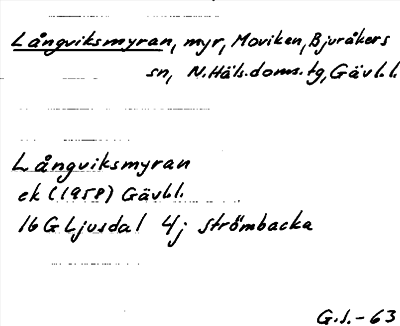 Långviksmyran, myr, Moviken, Bjuråkers
sn, N. Häls. doms. tg, Gävl. l.
Långviksmyran
ek (1958) Gävl.l.
16 G Ljusdal 4j Strömbacka
G.l. - 63